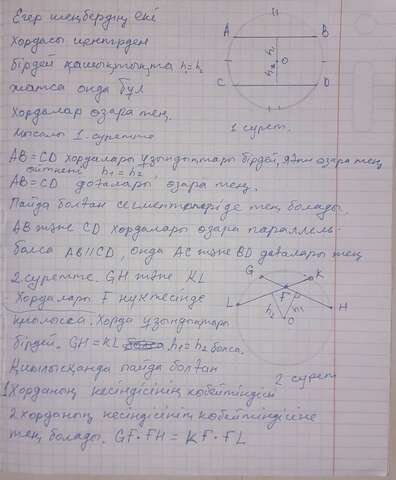 Егер шеңбердің екі
хордасы центрден
бірдей қашықтықта h₁=h₂
жатса онда бұл
хордалар өзара тең.
Мысалы 1-суретте
AB=CD хордалары ұзындықтары бірдей, яғни өзара тең
өйткені h₁=h₂,
AB=CD доғалары өзара тең.
Пайда болған сегменттері де тең болады.
AB және CD хордалары өзара параллель
болса AB||CD, онда AC және BD доғалары тең
2-суретте. GH және KL
Хордалары F нүктесінде
қиылысса. Хорда ұзындықтары
бірдей. GH=KL h₁=h₂ болса.
Қиылысқанда пайда болған
1 Хорданың кесіндісінің көбейтіндісі
2 хорданың кесіндісінің көбейтіндісіне
тең болады. GF·FH=KF·FL
A B
h₁
O
h₂
C D
1 сурет.
G K
F P
L H
h₂ h₁
O
2 сурет